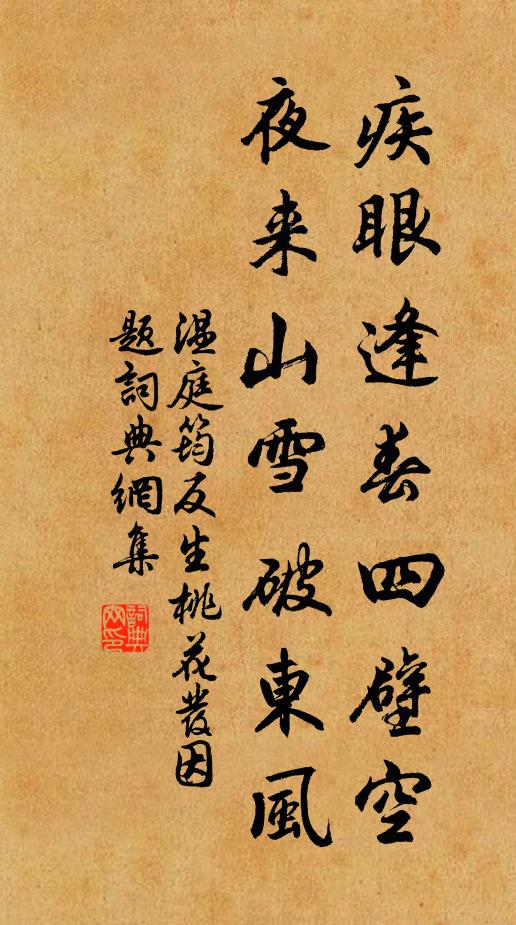 疾眼逢春四壁空
夜来山雪破東風
温庭筠反生桃花發因
題詞典網集
詞典網印